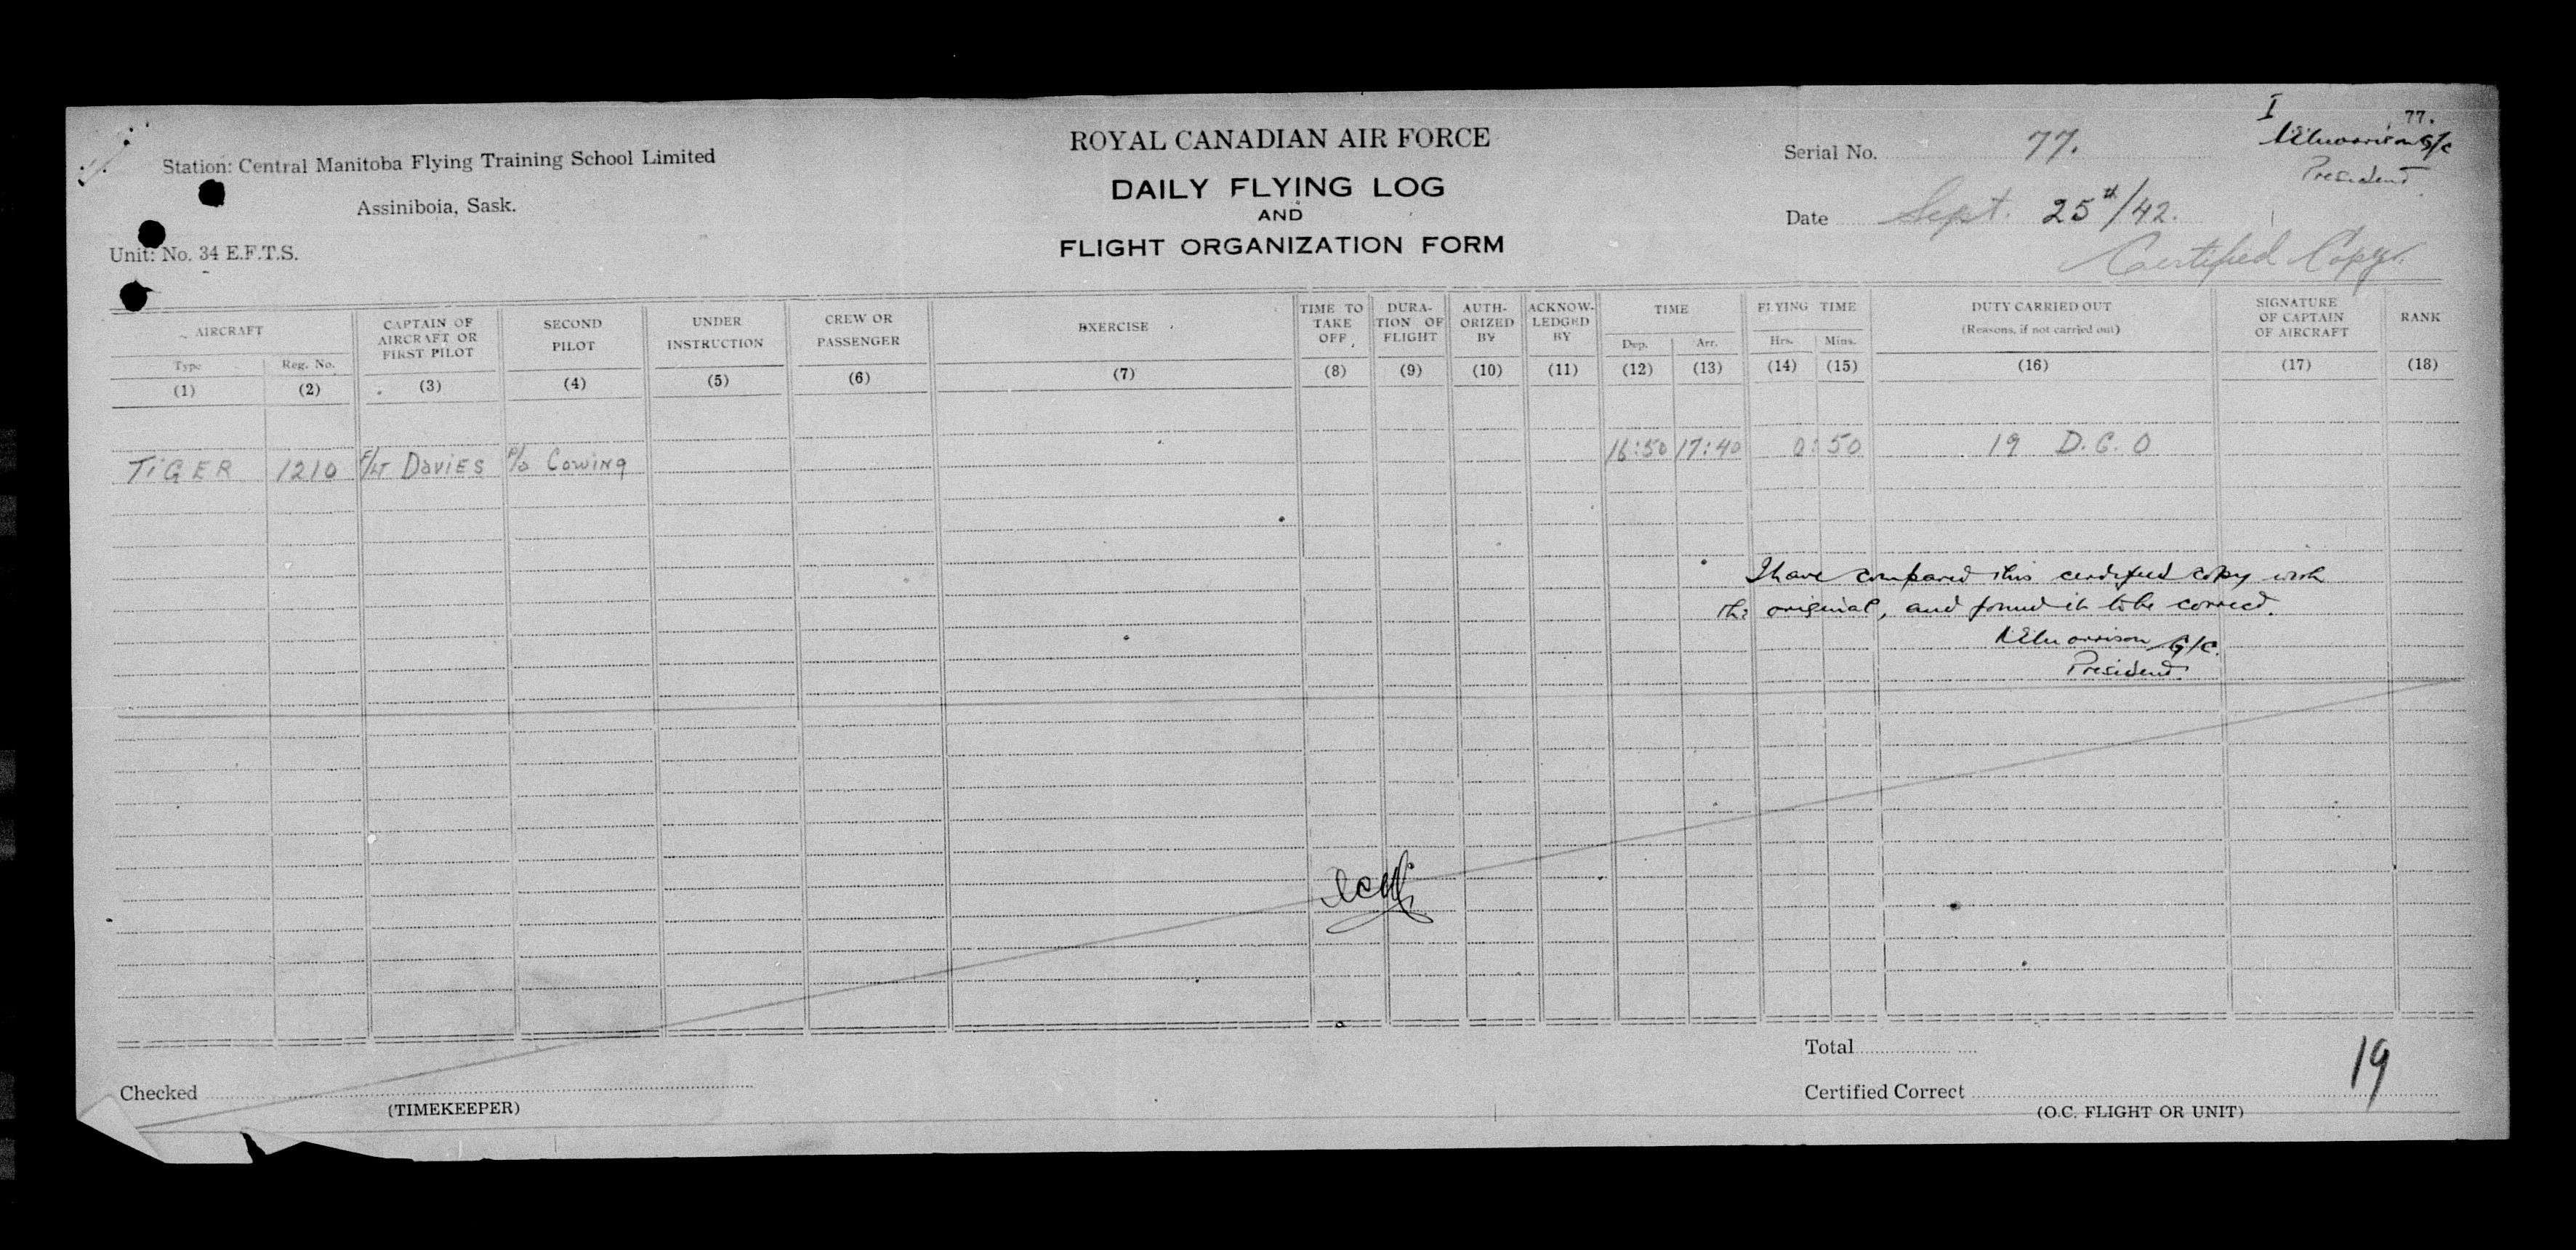 I
77.
NEMorrison G/C
President
Station: Central Manitoba Flying Training School Limited
Assiniboia, Sask.
Unit: No. 34 E.F.T.S.
ROYAL CANADIAN AIR FORCE
DAILY FLYING LOG
AND
FLIGHT ORGANIZATION FORM
Serial No. 77.
Date Sept. 25th/42.
Certified Copy.
AIRCRAFT
Type
(1)
Reg. No.
(2)
CAPTAIN OF
AIRCRAFT OR
FIRST PILOT
(3)
SECOND
PILOT
(4)
UNDER
INSTRUCTION
(5)
CREW OR
PASSENGER
(6)
EXERCISE
(7)
TIME TO
TAKE
OFF
(8)
DURA-
TION OF
FLIGHT
(9)
AUTH-
ORIZED
BY
(10)
ACKNOW-
LEDGED
BY
(11)
TIME
Dep.
(12)
Arr.
(13)
FLYING TIME
Hrs.
(14)
Mins.
(15)
DUTY CARRIED OUT
(Reasons, if not carried out)
(16)
SIGNATURE
OF CAPTAIN
OF AIRCRAFT
(17)
RANK
(18)
TIGER 1210 F/LT DAVIES P/O Cowing 16:50 17:40 0:50 19 D.C.O
I have compared this certified copy with
the original, and found it to be correct.
NEMorrison G/C.
President.
Total
19
Checked
(TIMEKEEPER)
Certified Correct
(O.C. FLIGHT OR UNIT)